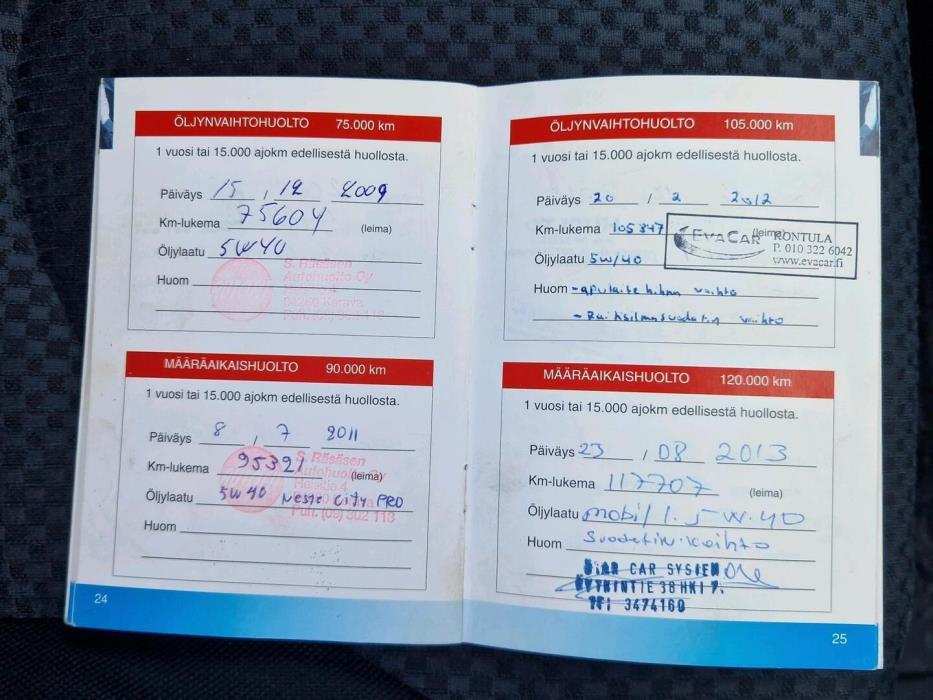 ÖLJYNVAIHTOHUOLTO 75.000 km
1 vuosi tai 15.000 ajokm edellisestä huollosta.
Päiväys 15 , 12 2009
Km-lukema 75604 (leima)
Öljylaatu 5W40
Huom
S. Räsäsen
Autohuolto Oy
04260 Kerava
MÄÄRÄAIKAISHUOLTO 90.000 km
1 vuosi tai 15.000 ajokm edellisestä huollosta.
Päiväys 8 , 7 2011
Km-lukema 95321 (leima)
Öljylaatu 5W40 Neste City PRO
Huom
S. Räsäsen
Autohuolto Oy
Puh. (09) 302 113
24
ÖLJYNVAIHTOHUOLTO 105.000 km
1 vuosi tai 15.000 ajokm edellisestä huollosta.
Päiväys 20 / 2 2012
Km-lukema 105847 (leima)
EVACAR KONTULA
P. 010 322 6042
www.evacar.fi
Öljylaatu 5w/40
Huom -apulaite hihnan vaihto
- Raitisilmasuodatin vaihto
MÄÄRÄAIKAISHUOLTO 120.000 km
1 vuosi tai 15.000 ajokm edellisestä huollosta.
Päiväys 23 / 08 2013
Km-lukema 117707 (leima)
Öljylaatu mobil 1. 5W.40
Huom
CAR SYSTEM
38 HKI
3474160
25